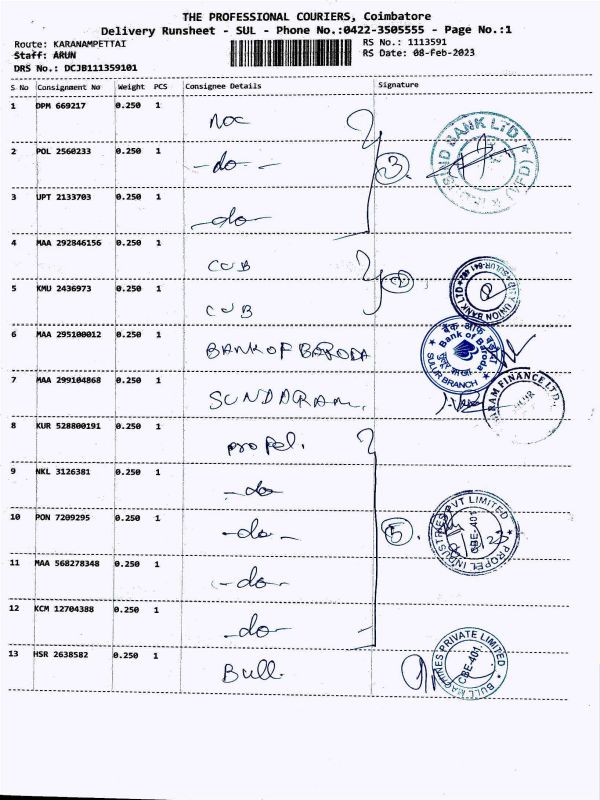 THE PROFESSIONAL COURIERS, Coimbatore
Delivery Runsheet - SUL - Phone No.:0422-3505555 - Page No.:1
Route: KARANAMPETTAI
RS No.: 1113591
Staff: ARUN
RS Date: 08-Feb-2023
DRS No.: DCJB111359101
S No Consignment No Weight PCS Consignee Details Signature
1 DPM 669217 0.250 1
2 POL 2560233 0.250 1 -do- 3
3 UPT 2133703 0.250 1 -do-
4 MAA 292846156 0.250 1 CUB
5 KMU 2436973 0.250 1 CUB 2
6 MAA 295100012 0.250 1 BANK OF BARODA
7 MAA 299104868 0.250 1 SUNDARAM.
8 KUR 528800191 0.250 1 propel.
9 NKL 3126381 0.250 1 -do
10 PON 7209295 0.250 1 -do- 5.
11 MAA 568278348 0.250 1 -do-
12 KCM 12704388 0.250 1 -do-
13 HSR 2638582 0.250 1 Bull.
BANK LTD.
CITY UNION BANK LTD
बैंक ऑफ
Bank of Baroda
SULUR BRANCH
FINANCE LTD.,
PROPEL INDUSTRIES PVT LIMITED
CBE-401
BULL MACHINES PRIVATE LIMITED
CBE-401.